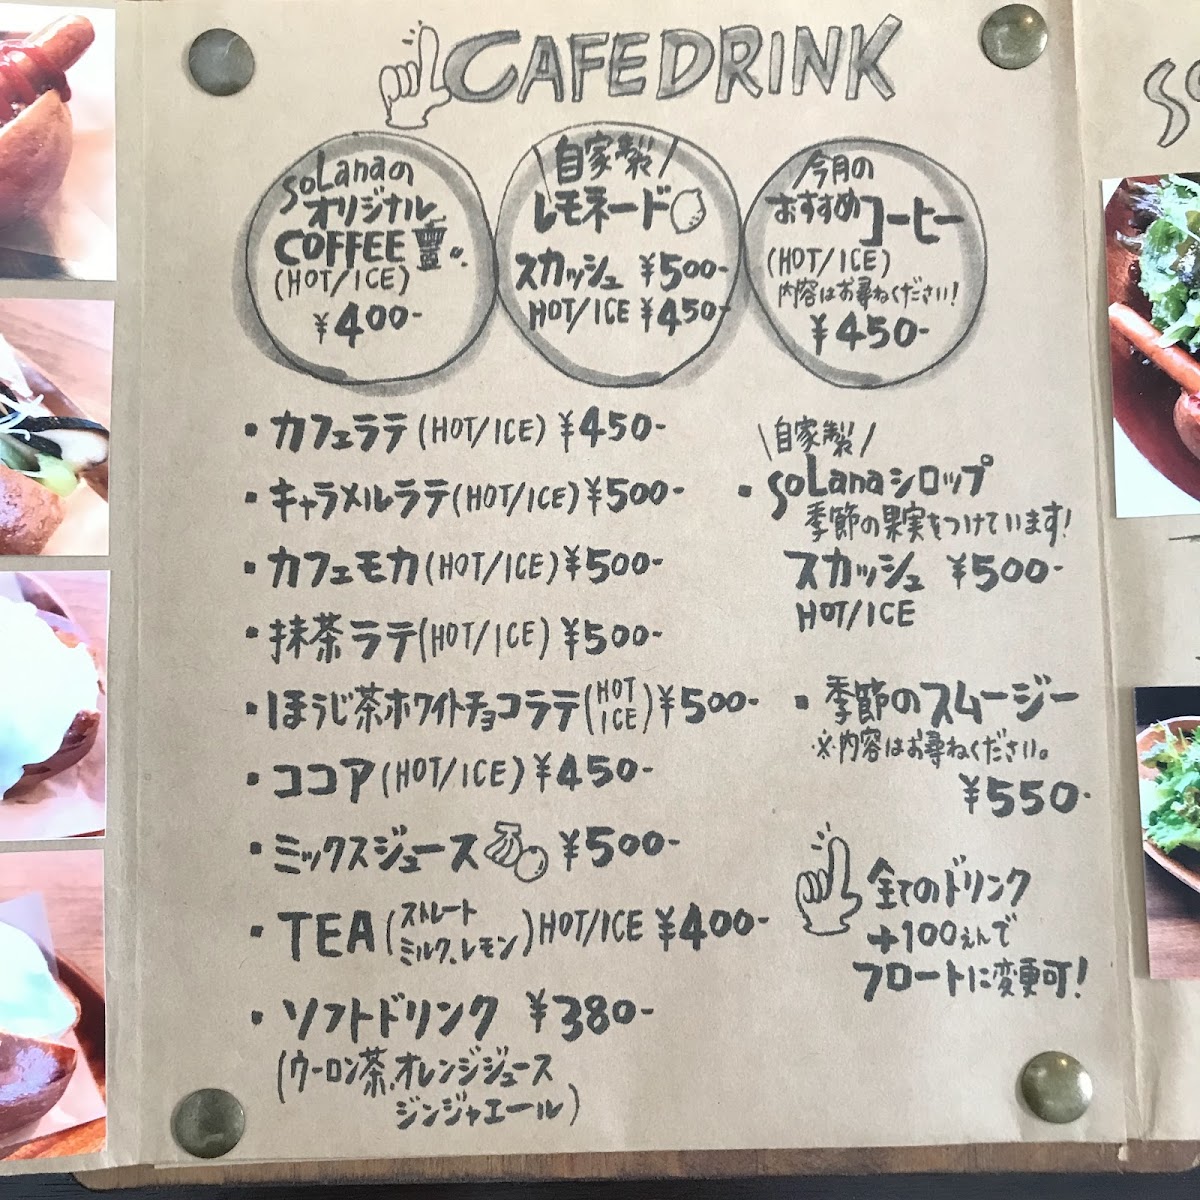 CAFE DRINK
soLanaの
オリジナル
COFFEE
(HOT/ICE)
¥400-
\自家製/
レモネード
スカッシュ ¥500-
HOT/ICE ¥450-
今月の
おすすめコーヒー
(HOT/ICE)
内容はお尋ねください!
¥450-
・カフェラテ(HOT/ICE)¥450-
・キャラメルラテ(HOT/ICE)¥500-
・カフェモカ(HOT/ICE)¥500-
・抹茶ラテ(HOT/ICE)¥500-
・ほうじ茶ホワイトチョコラテ(HOT/ICE)¥500-
・ココア(HOT/ICE)¥450-
・ミックスジュース ¥500-
・TEA(ストレート
ミルク、レモン)HOT/ICE ¥400-
・ソフトドリンク ¥380-
(ウーロン茶、オレンジジュース
ジンジャエール)
\自家製/
・soLanaシロップ
季節の果実をつけています!
スカッシュ ¥500-
HOT/ICE
・季節のスムージー
※内容はお尋ねください。
¥550-
全てのドリンク
+100えんで
フロートに変更可!